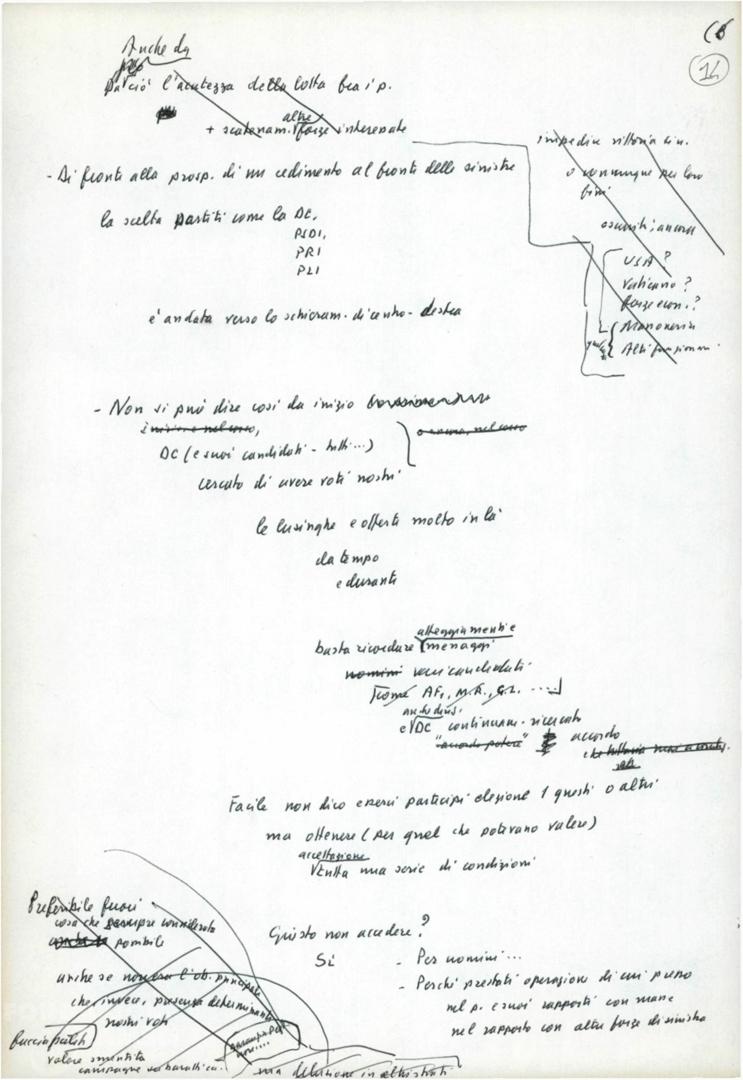 14
Anche da
Perciò l'acutezza della lotta fra i p.
altre
+ scatenam. forze interessate
impedire vittoria sin.
o comunque per loro
fini
- Di fronte alla prosp. di un cedimento al fronte delle sinistre
la scelta partiti come la DC,
PSDI,
PRI
PLI
USA?
Vaticano?
forze econ.?
Massoneria
Alti funzionari
è andata verso lo schieram. di centro-destra
- Non si può dire così da inizio
DC (e suoi candidati - tutti...)
o ancora, nel corso
cercato di avere voti nostri
le lusinghe e offerte molto in là
da tempo
e durante
atteggiamenti e
basta ricordare messaggi
uomini vari candidati
come AF., M.R., G.L. ....
e DC continuam. ricercato
"accordo potere" accordo
Facile non dico esserci partecipi elezione 1 questi o altri
ma ottenere (per quel che potevano valere)
accettazione
tutta una serie di condizioni
Preferibile fuori
cosa che sempre considerata
possibile
Giusto non accedere?
Sì
- Per uomini...
- Perché prestati operazione di cui preso
nel p. e suoi rapporti con masse
nel rapporto con altre forze di sinistra
anche se non era l'ob. principale
che, invece, presenza determinante
nostri voti
valore smentita
campagne
ma delusione in altri strati